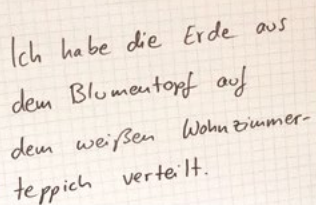 Ich habe die Erde aus
dem Blumentopf auf
dem weißen Wohnzimmer-
teppich verteilt.